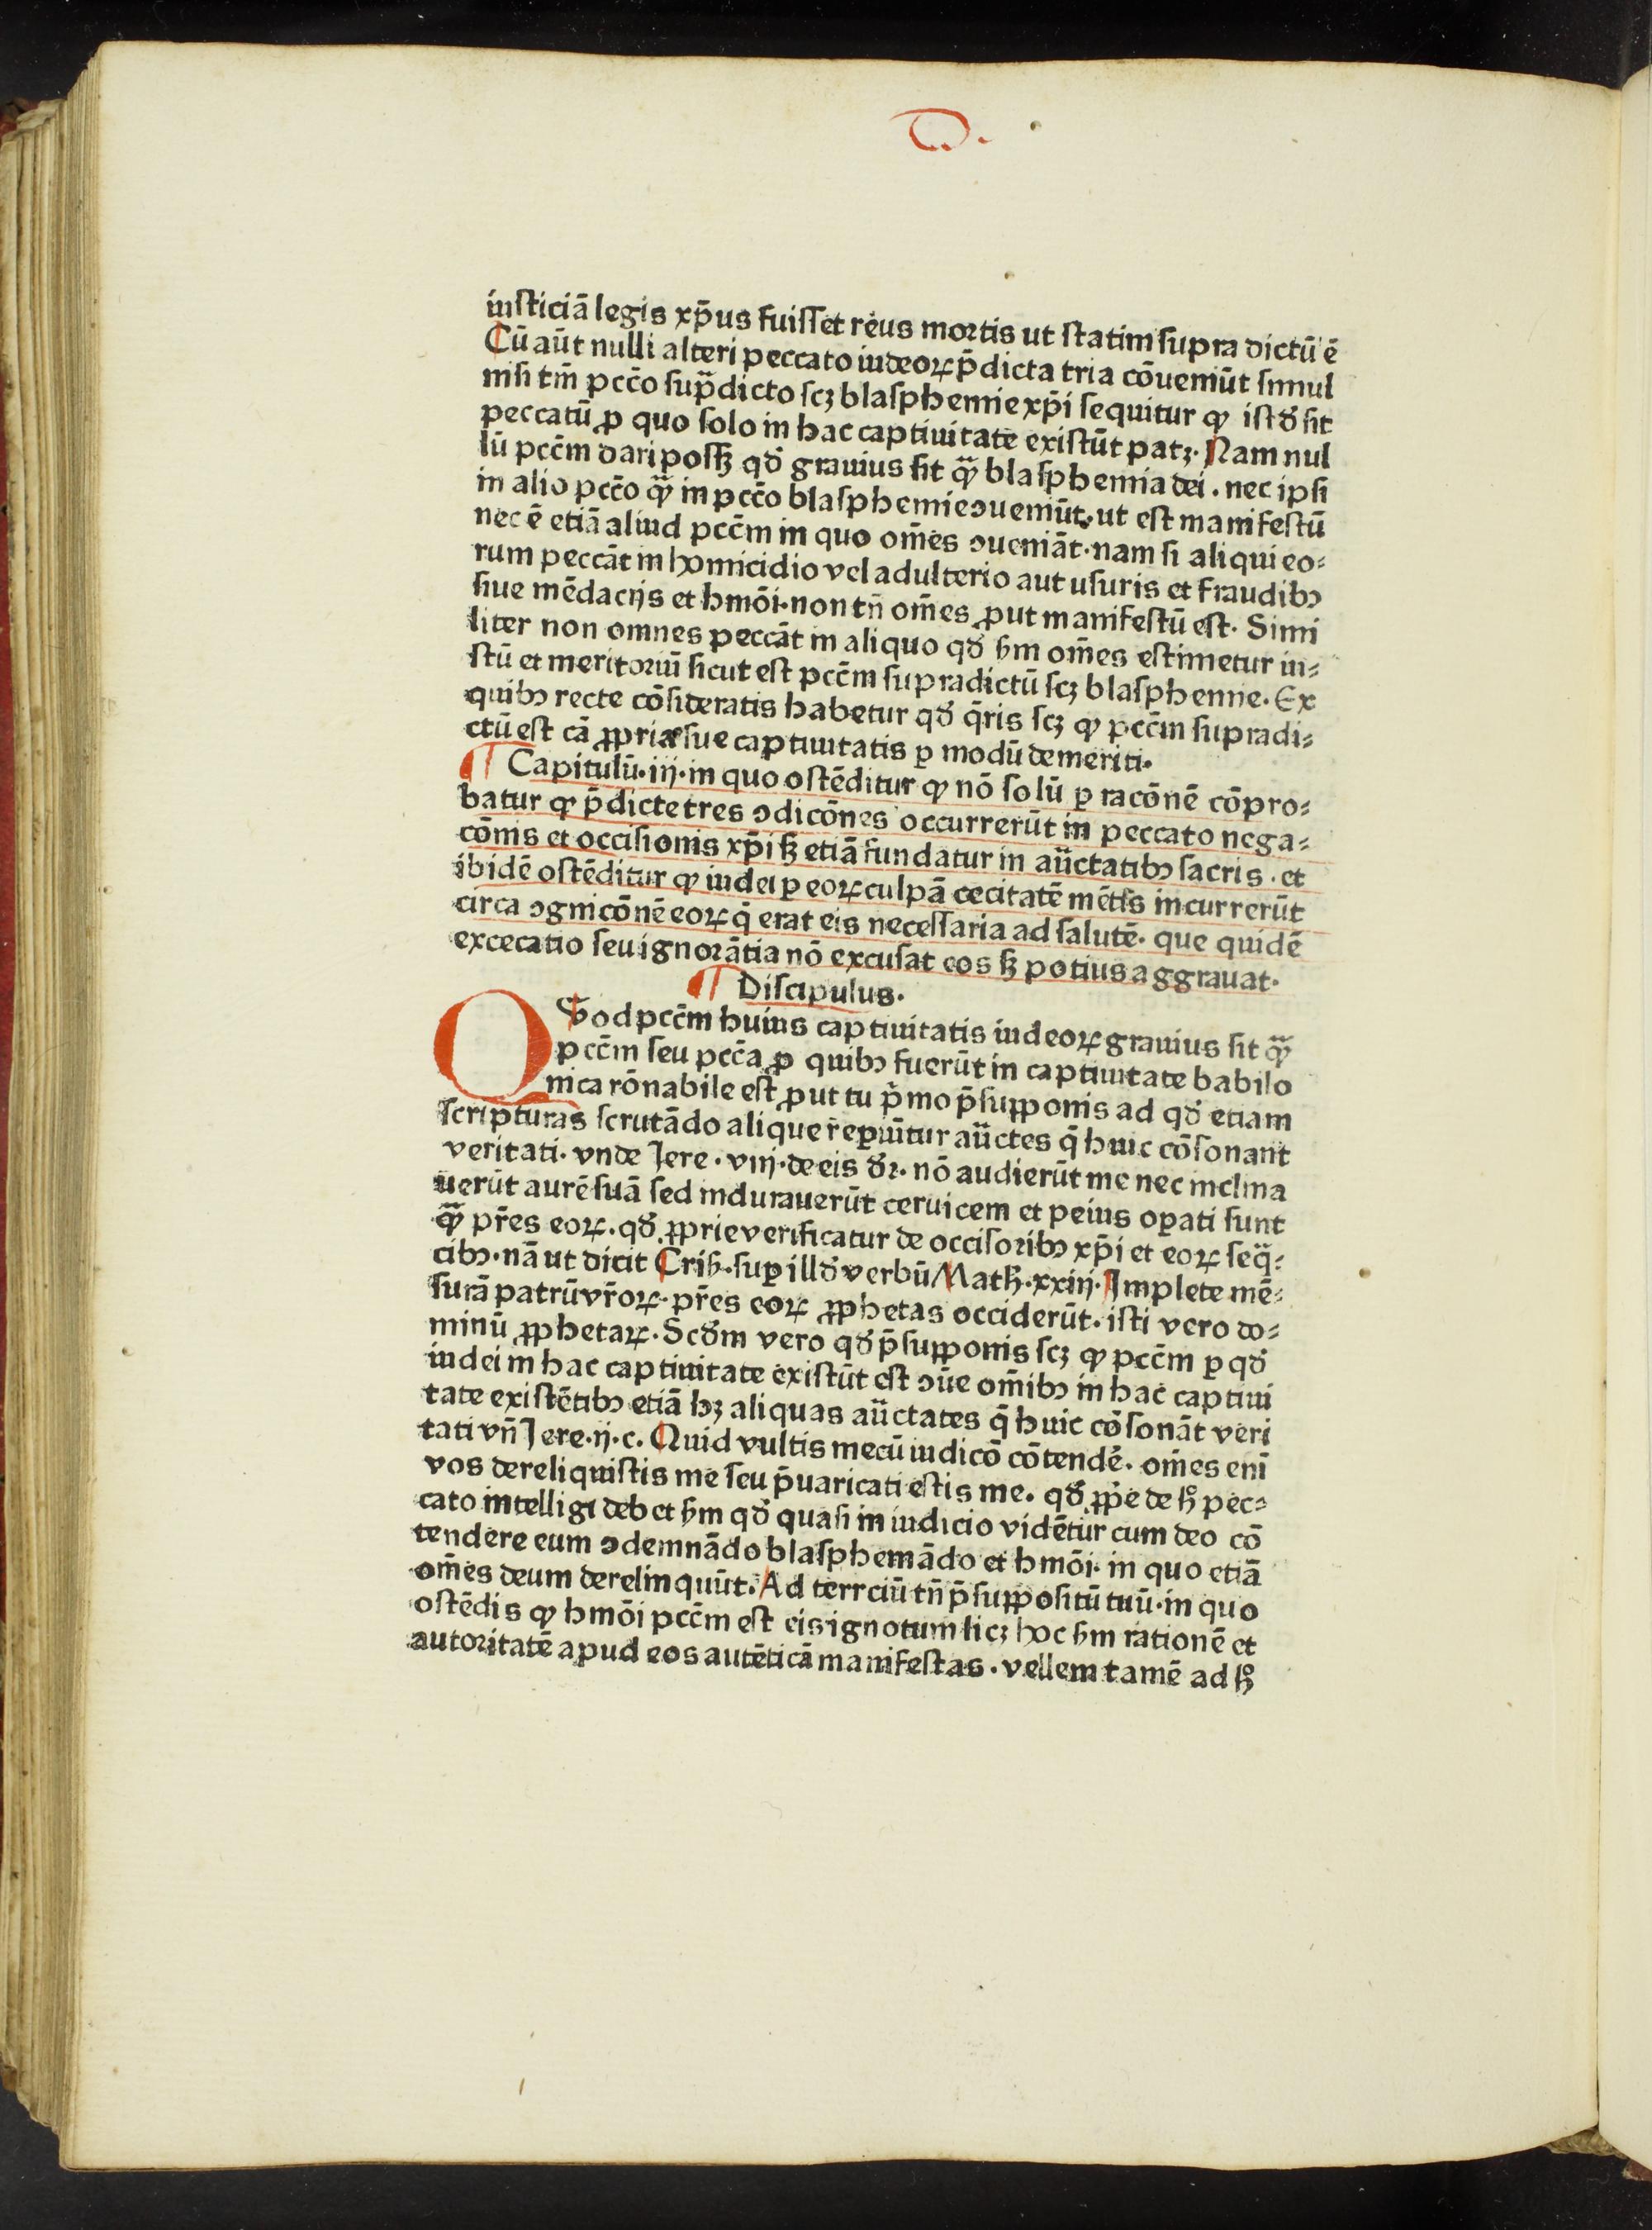 D.
iusticiā legis xp̄us fuisset reus mortis ut statim supra dictū ē
Cū aūt nulli alteri peccato iudeoꝝ p̄dicta tria cōueniūt simul
nisi tm̄ pcc̄o sup̄dicto scꝫ blasphemie xp̄i sequitur ꝙ istđ sit
peccatū ꝓ quo solo in hac captiuitate existūt patꝫ. Nam nul
lū pcc̄m dari possꝫ qđ grauius sit q̄ꝫ blasphemia dei. nec ipsi
in alio pcc̄o q̄ꝫ in pcc̄o blasphemie ↄueniūt. ut est manifestū
nec ē etiā aliud pcc̄m in quo om̄es ↄueniāt. nam si aliqui eo⸗
rum peccāt in homicidio vel adulterio aut usuris et fraudibꝰ
siue mēdacijs et hmōi. non tn̄ om̄es ꝓut manifestū est. Simi
liter non omnes peccāt in aliquo qđ ẜm om̄es estimetur iu⸗
stū et meritoriū sicut est pcc̄m supradictū scꝫ blasphemie. Ex
quibꝰ recte cōsideratis habetur qđ q̄ris scꝫ ꝙ pcc̄m supradi⸗
ctū est cā ꝓpria sue captiuitatis ꝑ modū demeriti.
¶ Capitulū. iij. in quo ostēditur ꝙ nō solū ꝑ racōnē cōpro⸗
batur ꝙ p̄dicte tres ↄdicōnes occurrerūt in peccato nega⸗
cōnis et occisionis xp̄i sꝫ etiā fundatur in auc̄tatibꝰ sacris. et
ibidē ostēditur ꝙ iudei ꝑ eoꝝ culpā cecitatē mētis incurrerūt
circa ↄgnicōnē eoꝝ q̄ erat eis necessaria ad salutē. que quidē
excecatio seu ignorātia nō excusat eos sꝫ potius aggrauat.
¶ Discipulus.
Quod pcc̄m huius captiuitatis iudeoꝝ grauius sit q̄ꝫ
pcc̄m seu pcc̄a ꝓ quibꝰ fuerūt in captiuitate babilo
nica rōnabile est ꝓut tu p̄mo p̄supponis ad qđ etiam
scripturas scrutādo alique reꝑiūtur auc̄tes q̄ huic cōsonant
veritati. vnde Jere. viij. de eis đr. nō audierūt me nec inclina
uerūt aurē suā sed indurauerūt ceruicem et peius oꝑati sunt
q̄ꝫ pr̄es eoꝝ. qđ ꝓprie verificatur de occisoribꝰ xp̄i et eoꝝ seq̄⸗
cibꝰ. nā ut dicit Crisͦ. suꝑ illđ verbū Math. xxiij. Implete mē⸗
surā patrū vr̄oꝝ. pr̄es eoꝝ ꝓphetas occiderūt. isti vero do⸗
minū ꝓphetaꝝ. Scđm vero qđ p̄supponis scꝫ ꝙ pcc̄m ꝑ qđ
iudei in hac captiuitate existūt est ↄūe om̄ibꝰ in hac captiui
tate existētibꝰ etiā hꝫ aliquas auc̄tates q̄ huic cōsonāt veri
tati vn̄ Jere. ij. c. Quid vultis mecū iudicō cōtendē. om̄es eni
vos dereliquistis me seu p̄uaricati estis me. qđ ꝓp̄e de hͦ pec⸗
cato intelligi debet ẜm qđ quasi in iudicio vidētur cum deo cō
tendere eum ↄdemnādo blasphemādo et hmōi. in quo etiā
om̄es deum derelinquūt. Ad terrciū tn̄ p̄suppositū tuū. in quo
ostēdis ꝙ hmōi pcc̄m est eis ignotum licꝫ hoc ẜm rationē et
autoritatē apud eos autēticā manifestas. vellem tamē ad hͦ